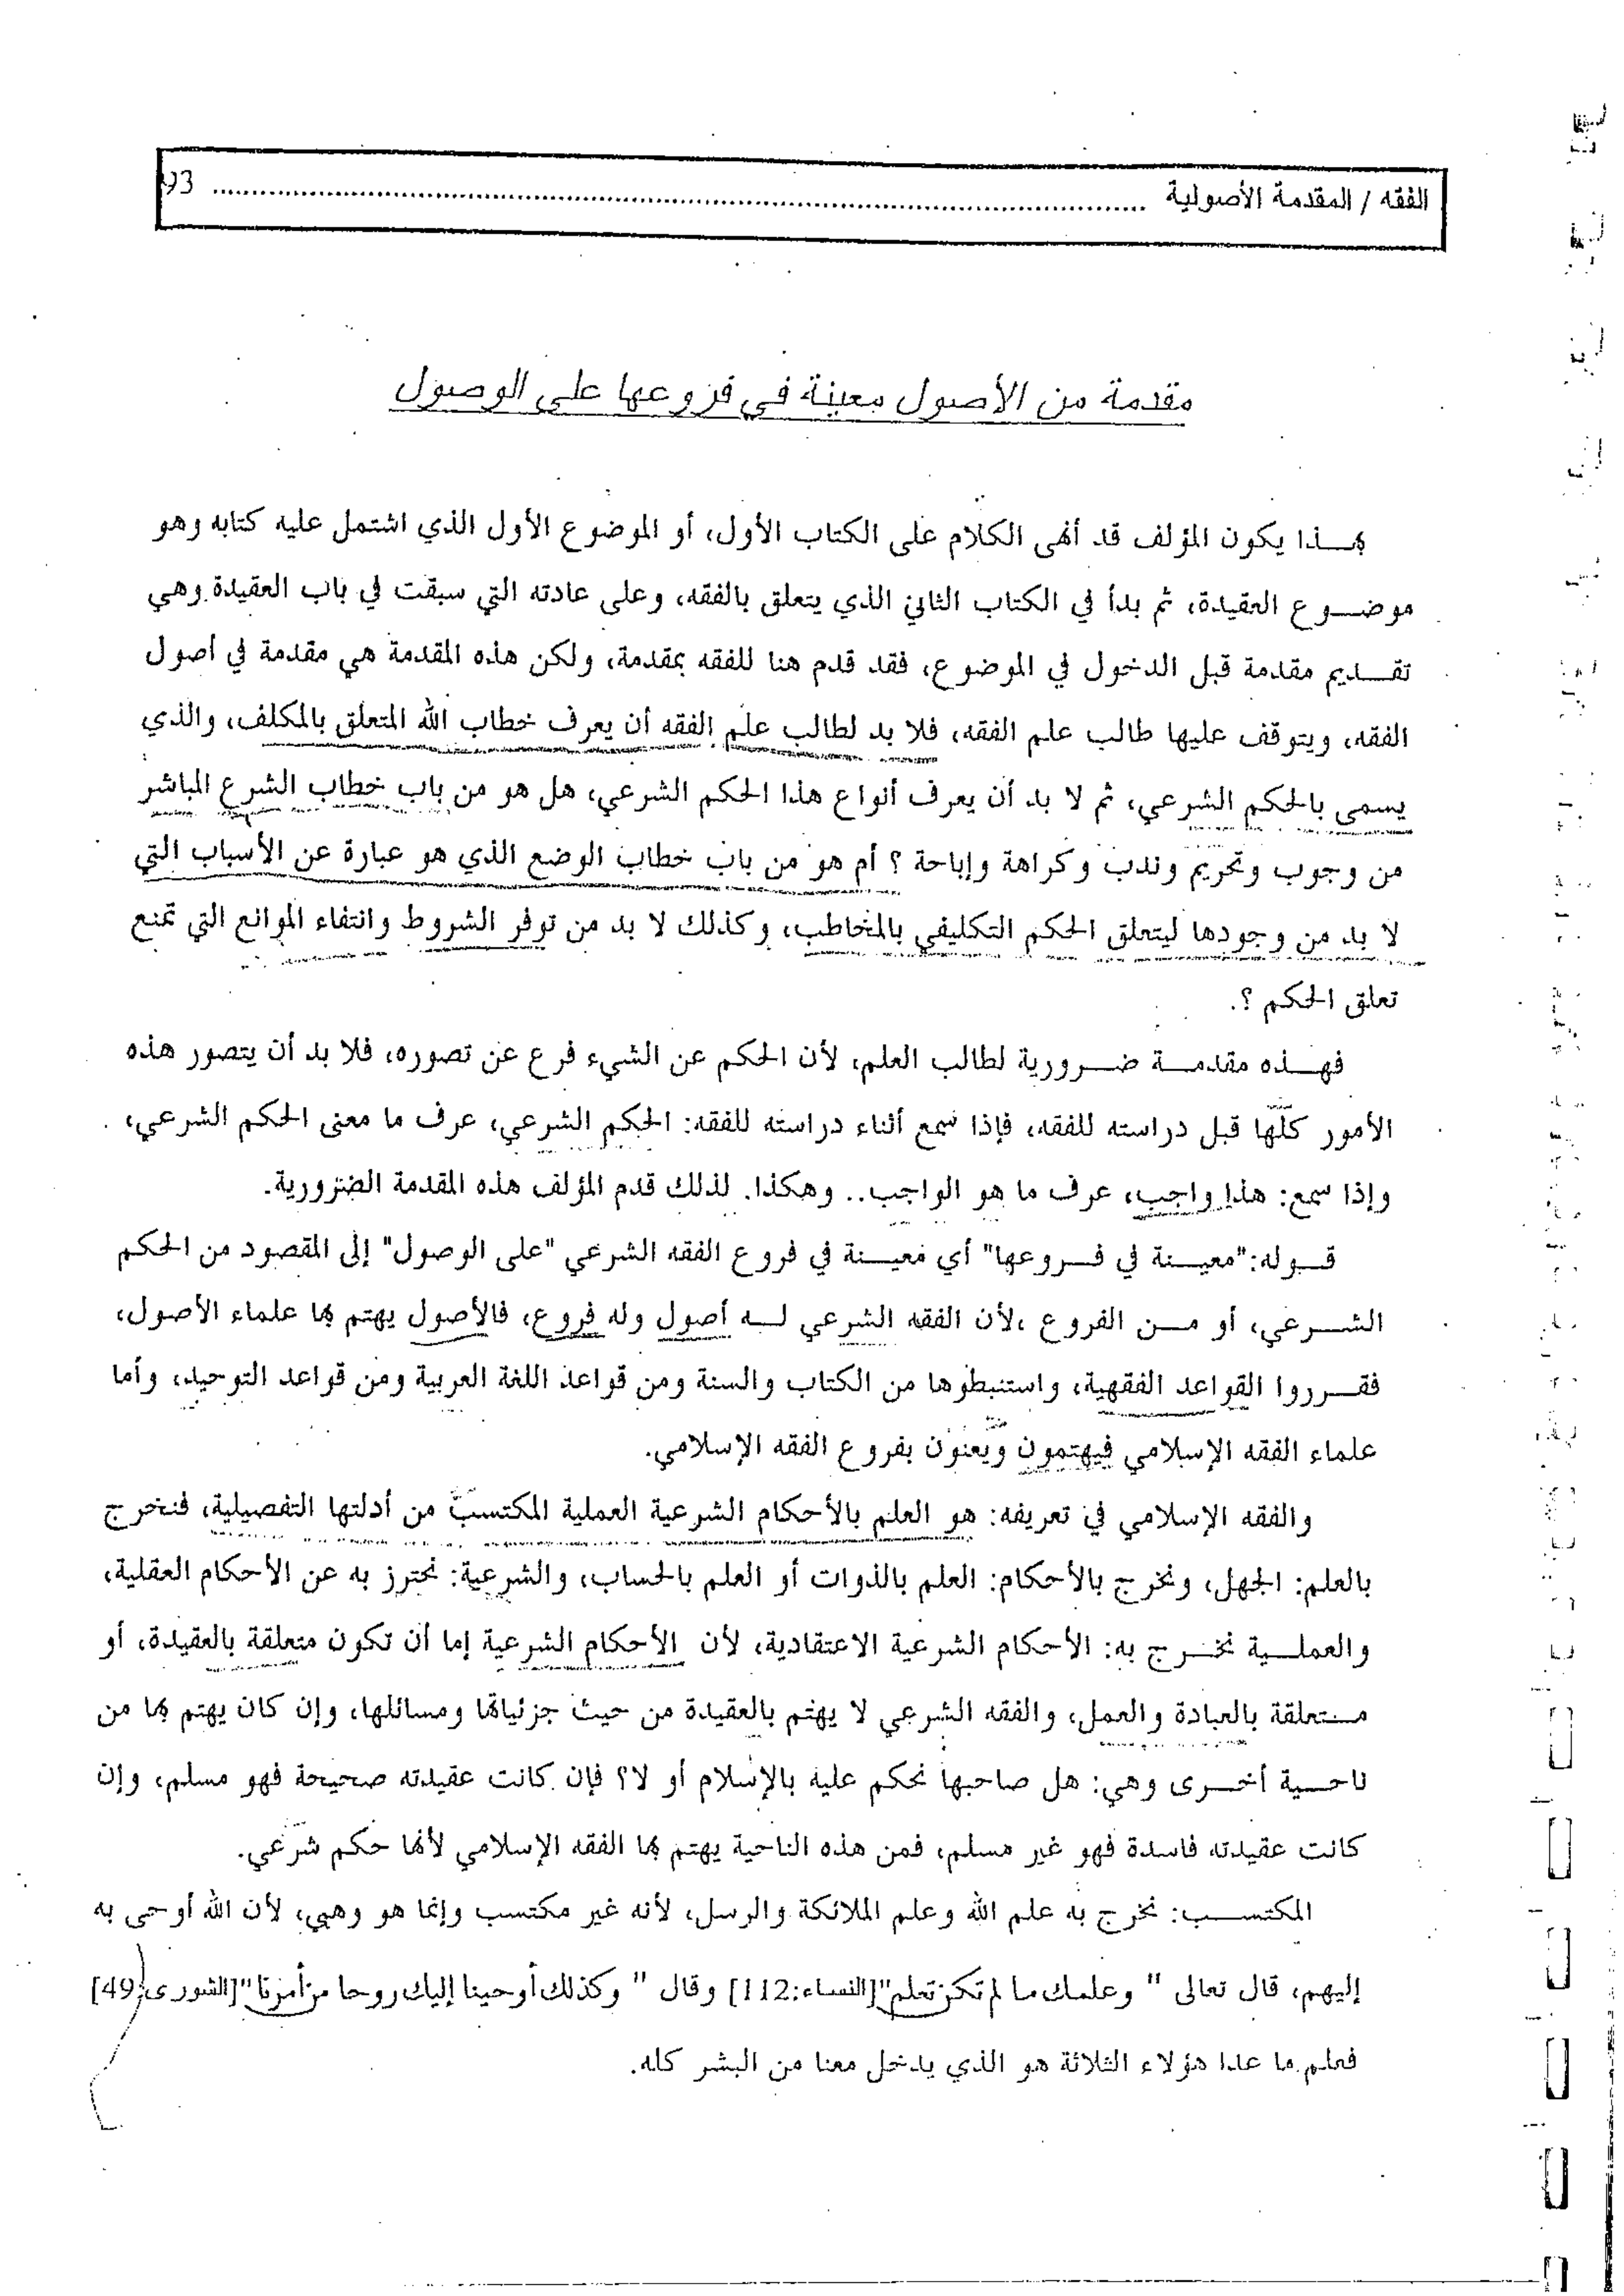 الفقه / المقدمة الأصولية ........................................................ 93
مقدمة من الأصول معينة في فروعها على الوصول
بهذا يكون المؤلف قد أنهى الكلام على الكتاب الأول، أو الموضوع الأول الذي اشتمل عليه كتابه وهو
موضوع العقيدة، ثم بدأ في الكتاب الثاني الذي يتعلق بالفقه، وعلى عادته التي سبقت في باب العقيدة وهي
تقديم مقدمة قبل الدخول في الموضوع، فقد قدم هنا للفقه بمقدمة، ولكن هذه المقدمة هي مقدمة في أصول
الفقه، ويتوقف عليها طالب علم الفقه، فلا بد لطالب علم الفقه أن يعرف خطاب الله المتعلق بالمكلف، والذي
يسمى بالحكم الشرعي، ثم لا بد أن يعرف أنواع هذا الحكم الشرعي، هل هو من باب خطاب الشرع المباشر
من وجوب وتحريم وندب وكراهة وإباحة ؟ أم هو من باب خطاب الوضع الذي هو عبارة عن الأسباب التي
لا بد من وجودها ليتعلق الحكم التكليفي بالمخاطب، وكذلك لا بد من توفر الشروط وانتفاء الموانع التي تمنع
تعلق الحكم ؟.
فهذه مقدمة ضرورية لطالب العلم، لأن الحكم عن الشيء فرع عن تصوره، فلا بد أن يتصور هذه
الأمور كلّها قبل دراسته للفقه، فإذا سمع أثناء دراسته للفقه: الحكم الشرعي، عرف ما معنى الحكم الشرعي،
وإذا سمع: هذا واجب، عرف ما هو الواجب.. وهكذا. لذلك قدم المؤلف هذه المقدمة الضرورية.
قوله:"معينة في فروعها" أي معينة في فروع الفقه الشرعي "على الوصول" إلى المقصود من الحكم
الشرعي، أو من الفروع ،لأن الفقه الشرعي له أصول وله فروع، فالأصول يهتم بها علماء الأصول،
فقرروا القواعد الفقهية، واستنبطوها من الكتاب والسنة ومن قواعد اللغة العربية ومن قواعد التوحيد، وأما
علماء الفقه الإسلامي فيهتمون ويعنون بفروع الفقه الإسلامي.
والفقه الإسلامي في تعريفه: هو العلم بالأحكام الشرعية العملية المكتسب من أدلتها التفصيلية، فنخرج
بالعلم: الجهل، ونخرج بالأحكام: العلم بالذوات أو العلم بالحساب، والشرعية: نحترز به عن الأحكام العقلية،
والعملية نخرج به: الأحكام الشرعية الاعتقادية، لأن الأحكام الشرعية إما أن تكون متعلقة بالعقيدة، أو
متعلقة بالعبادة والعمل، والفقه الشرعي لا يهتم بالعقيدة من حيث جزئياتها ومسائلها، وإن كان يهتم بها من
ناحية أخرى وهي: هل صاحبها نحكم عليه بالإسلام أو لا؟ فإن كانت عقيدته صحيحة فهو مسلم، وإن
كانت عقيدته فاسدة فهو غير مسلم، فمن هذه الناحية يهتم بها الفقه الإسلامي لأنها حكم شرعي.
المكتسب: نخرج به علم الله وعلم الملائكة والرسل، لأنه غير مكتسب وإنما هو وهبي، لأن الله أوحى به
إليهم، قال تعالى " وعلمك ما لم تكن تعلم"[النساء:112] وقال " وكذلك أوحينا إليك روحا من أمرنا"[الشورى:49]
فعلم ما عدا هؤلاء الثلاثة هو الذي يدخل معنا من البشر كله.